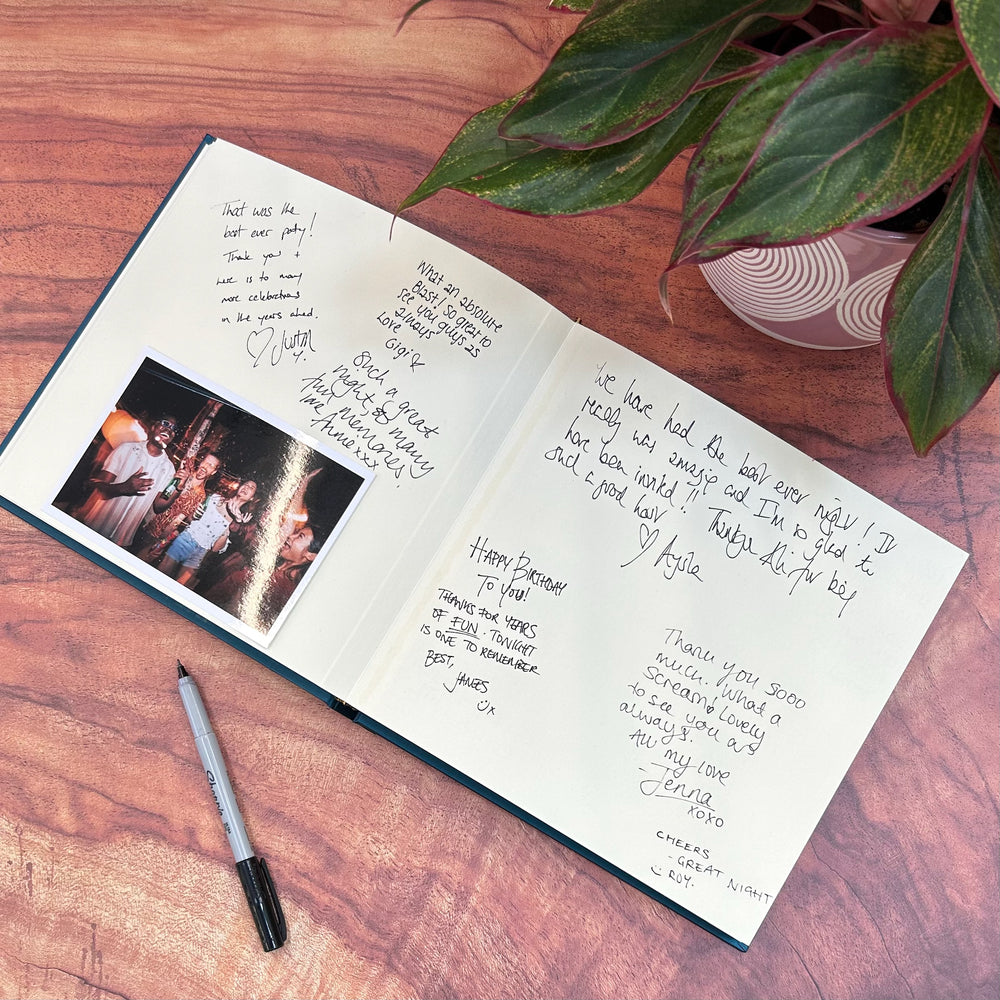 That was the
best ever party!
Thank you +
here is to many
more celebrations
in the years ahead.
♡ Justin
What an absolute
Blast! So great to
see you guys as
always
Love
Gigi
Such a great
night, so many
fun memories.
love
Annie xxx
We have had the best ever night! It
really was amazing and I'm so glad to
have been invited!! Thanks Ali for being
such a good host
♡ Aysha
HAPPY BIRTHDAY
TO YOU!
THANKS FOR YEARS
OF FUN. TONIGHT
IS ONE TO REMEMBER
BEST,
JAMES
x
Thank you sooo
much. What a
Scream! Lovely
to see you as
always.
All my love
- Jenna
xoxo
CHEERS
- GREAT NIGHT
ROY.
Sharpie